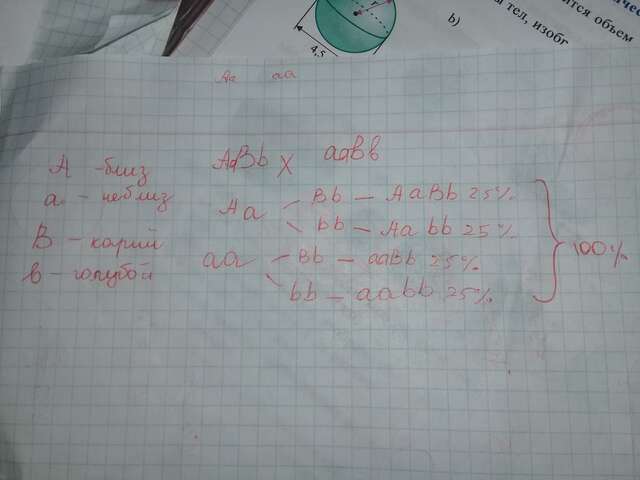 ится объем
ы тел, изобг
b)
4,5
Aa aa
A - близ
a - неблиз
B - карий
в - голубой
AaBb X aaBb
Aa
Bb - AaBb 25%
bb - Aabb 25%
aa
Bb - aaBb 25%
bb - aabb 25%
100%